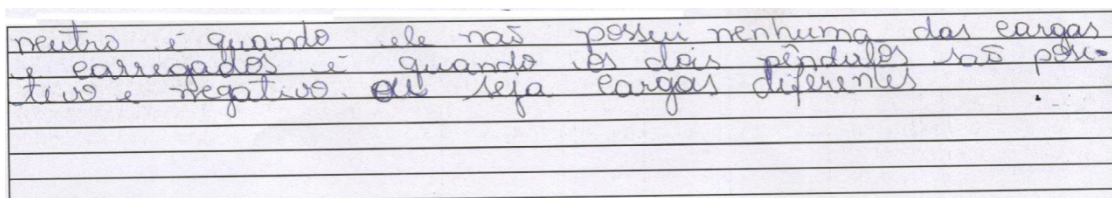 neutro é quando ele não possui nenhuma das cargas
e carregados é quando os dois pêndulos são posi-
tivo e negativo. ou seja cargas diferentes